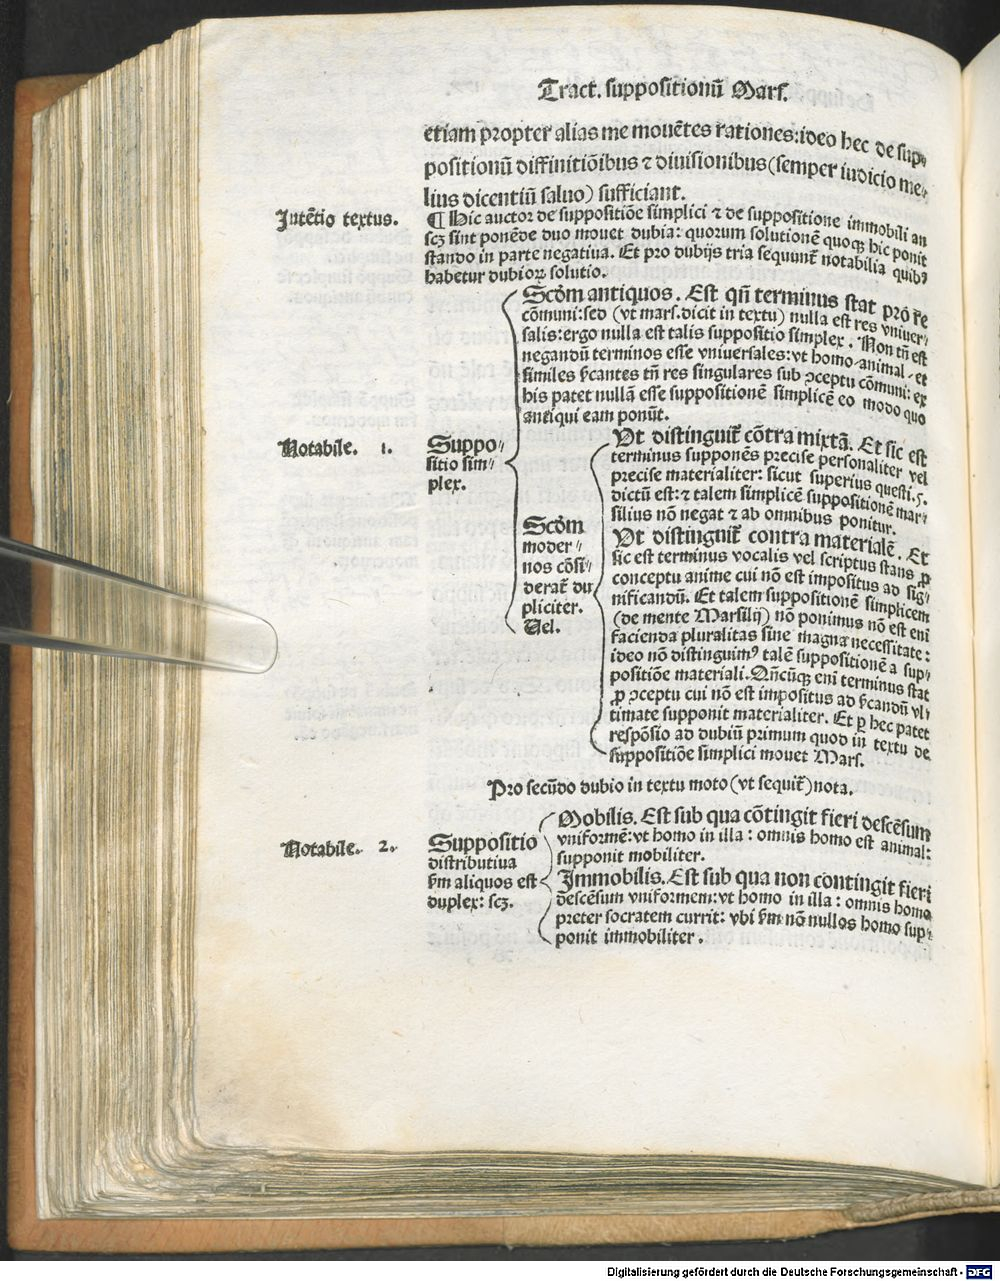 Tract. suppositionū Mars.
etiam propter alias me mouētes rationes: ideo hec de sup⸗
positionū diffinitiōibus ⁊ diuisionibus (semper iudicio me⸗
lius dicentiū saluo) sufficiant.
Intētio textus.
¶ Hic auctor de suppositiōe simplici ⁊ de suppositione immobili an
scꝫ sint ponēde duo mouet dubia: quorum solutionē quoqꝫ hic ponit
stando in parte negatiua. Et pro dubijs tria sequunt̄ notabilia quibꝰ
habetur dubioꝝ solutio.
Notabile. 1.
Suppo⸗
sitio sim⸗
plex.
Scḋm antiquos. Est qn̄ terminus stat pro re
cōmuni: sed (vt mars. dicit in textu) nulla est res vniuer⸗
salis: ergo nulla est talis suppositio simplex. Non tn̄ est
negandū terminos esse vniuersales: vt homo animal. et
similes s̄cantes tn̄ res singulares sub ↄceptu cōmuni: ex
his patet nullā esse suppositionē simplicē eo modo quo
antiqui eam ponūt.
Scḋm
moder⸗
nos cōsi⸗
derat̄ du
pliciter.
Uel.
Ut distinguit̄ cōtra mixtā. Et sic est
terminus supponēs precise personaliter vel
precise materialiter: sicut superius questi. 5.
dictū est: ⁊ talem simplicē suppositionē mar⸗
silius nō negat ⁊ ab omnibus ponitur.
Ut distinguit̄ contra materialē. Et
sic est terminus vocalis vel scriptus stans ꝓ
conceptu anime cui nō est impositus ad sig⸗
nificandū. Et talem suppositionē simplicem
(de mente Marsilij) nō ponimus nō est eni
facienda pluralitas sine magna necessitate:
ideo nō distinguimꝰ talē suppositionē a sup⸗
positiōe materiali. Qn̄cūqꝫ eni terminus stat
ꝓ ↄceptu cui nō est impositus ad s̄candū vl⸗
timate supponit materialiter. Et ꝑ hec patet
respōsio ad dubiū primum quod in textu de
suppositiōe simplici mouet Mars.
Pro secūdo dubio in textu moto (vt sequit̄) nota.
Notabile. 2.
Suppositio
distributiua
s̄m aliquos est
duplex: scꝫ.
Mobilis. Est sub qua cōtingit fieri descēsum
vniformē: vt homo in illa: omnis homo est animal:
supponit mobiliter.
Immobilis. Est sub qua non contingit fieri
descēsum vniformem: vt homo in illa: omnis homo
preter socratem currit: vbi s̄m nō nullos homo sup⸗
ponit immobiliter.
Digitalisierung gefördert durch die Deutsche Forschungsgemeinschaft - DFG